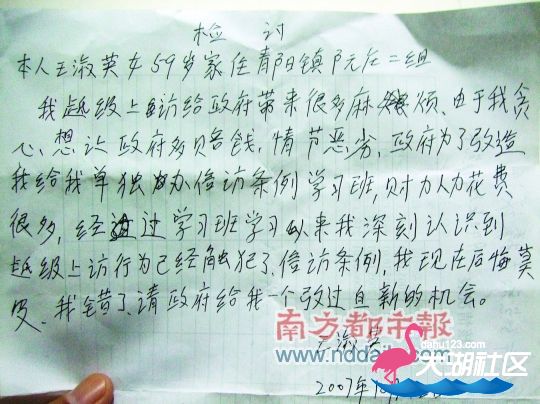 检 讨
本人王淑英女59岁家住郧阳镇阮庄二组
我越级上访给政府带来很多麻烦、由于我贪
心、想让政府多赔钱、情节恶劣、政府为了改造
我给我单独办信访条例学习班,财力人力花费
很多,经过学习班学习以来我深刻认识到
越级上访行为已经触犯了信访条例,我现在后悔莫
及、我错了请政府给我一个改过自新的机会。
南方都市報
www.nddaily
王淑英
2007年10月
大湖社区
dahu123.com